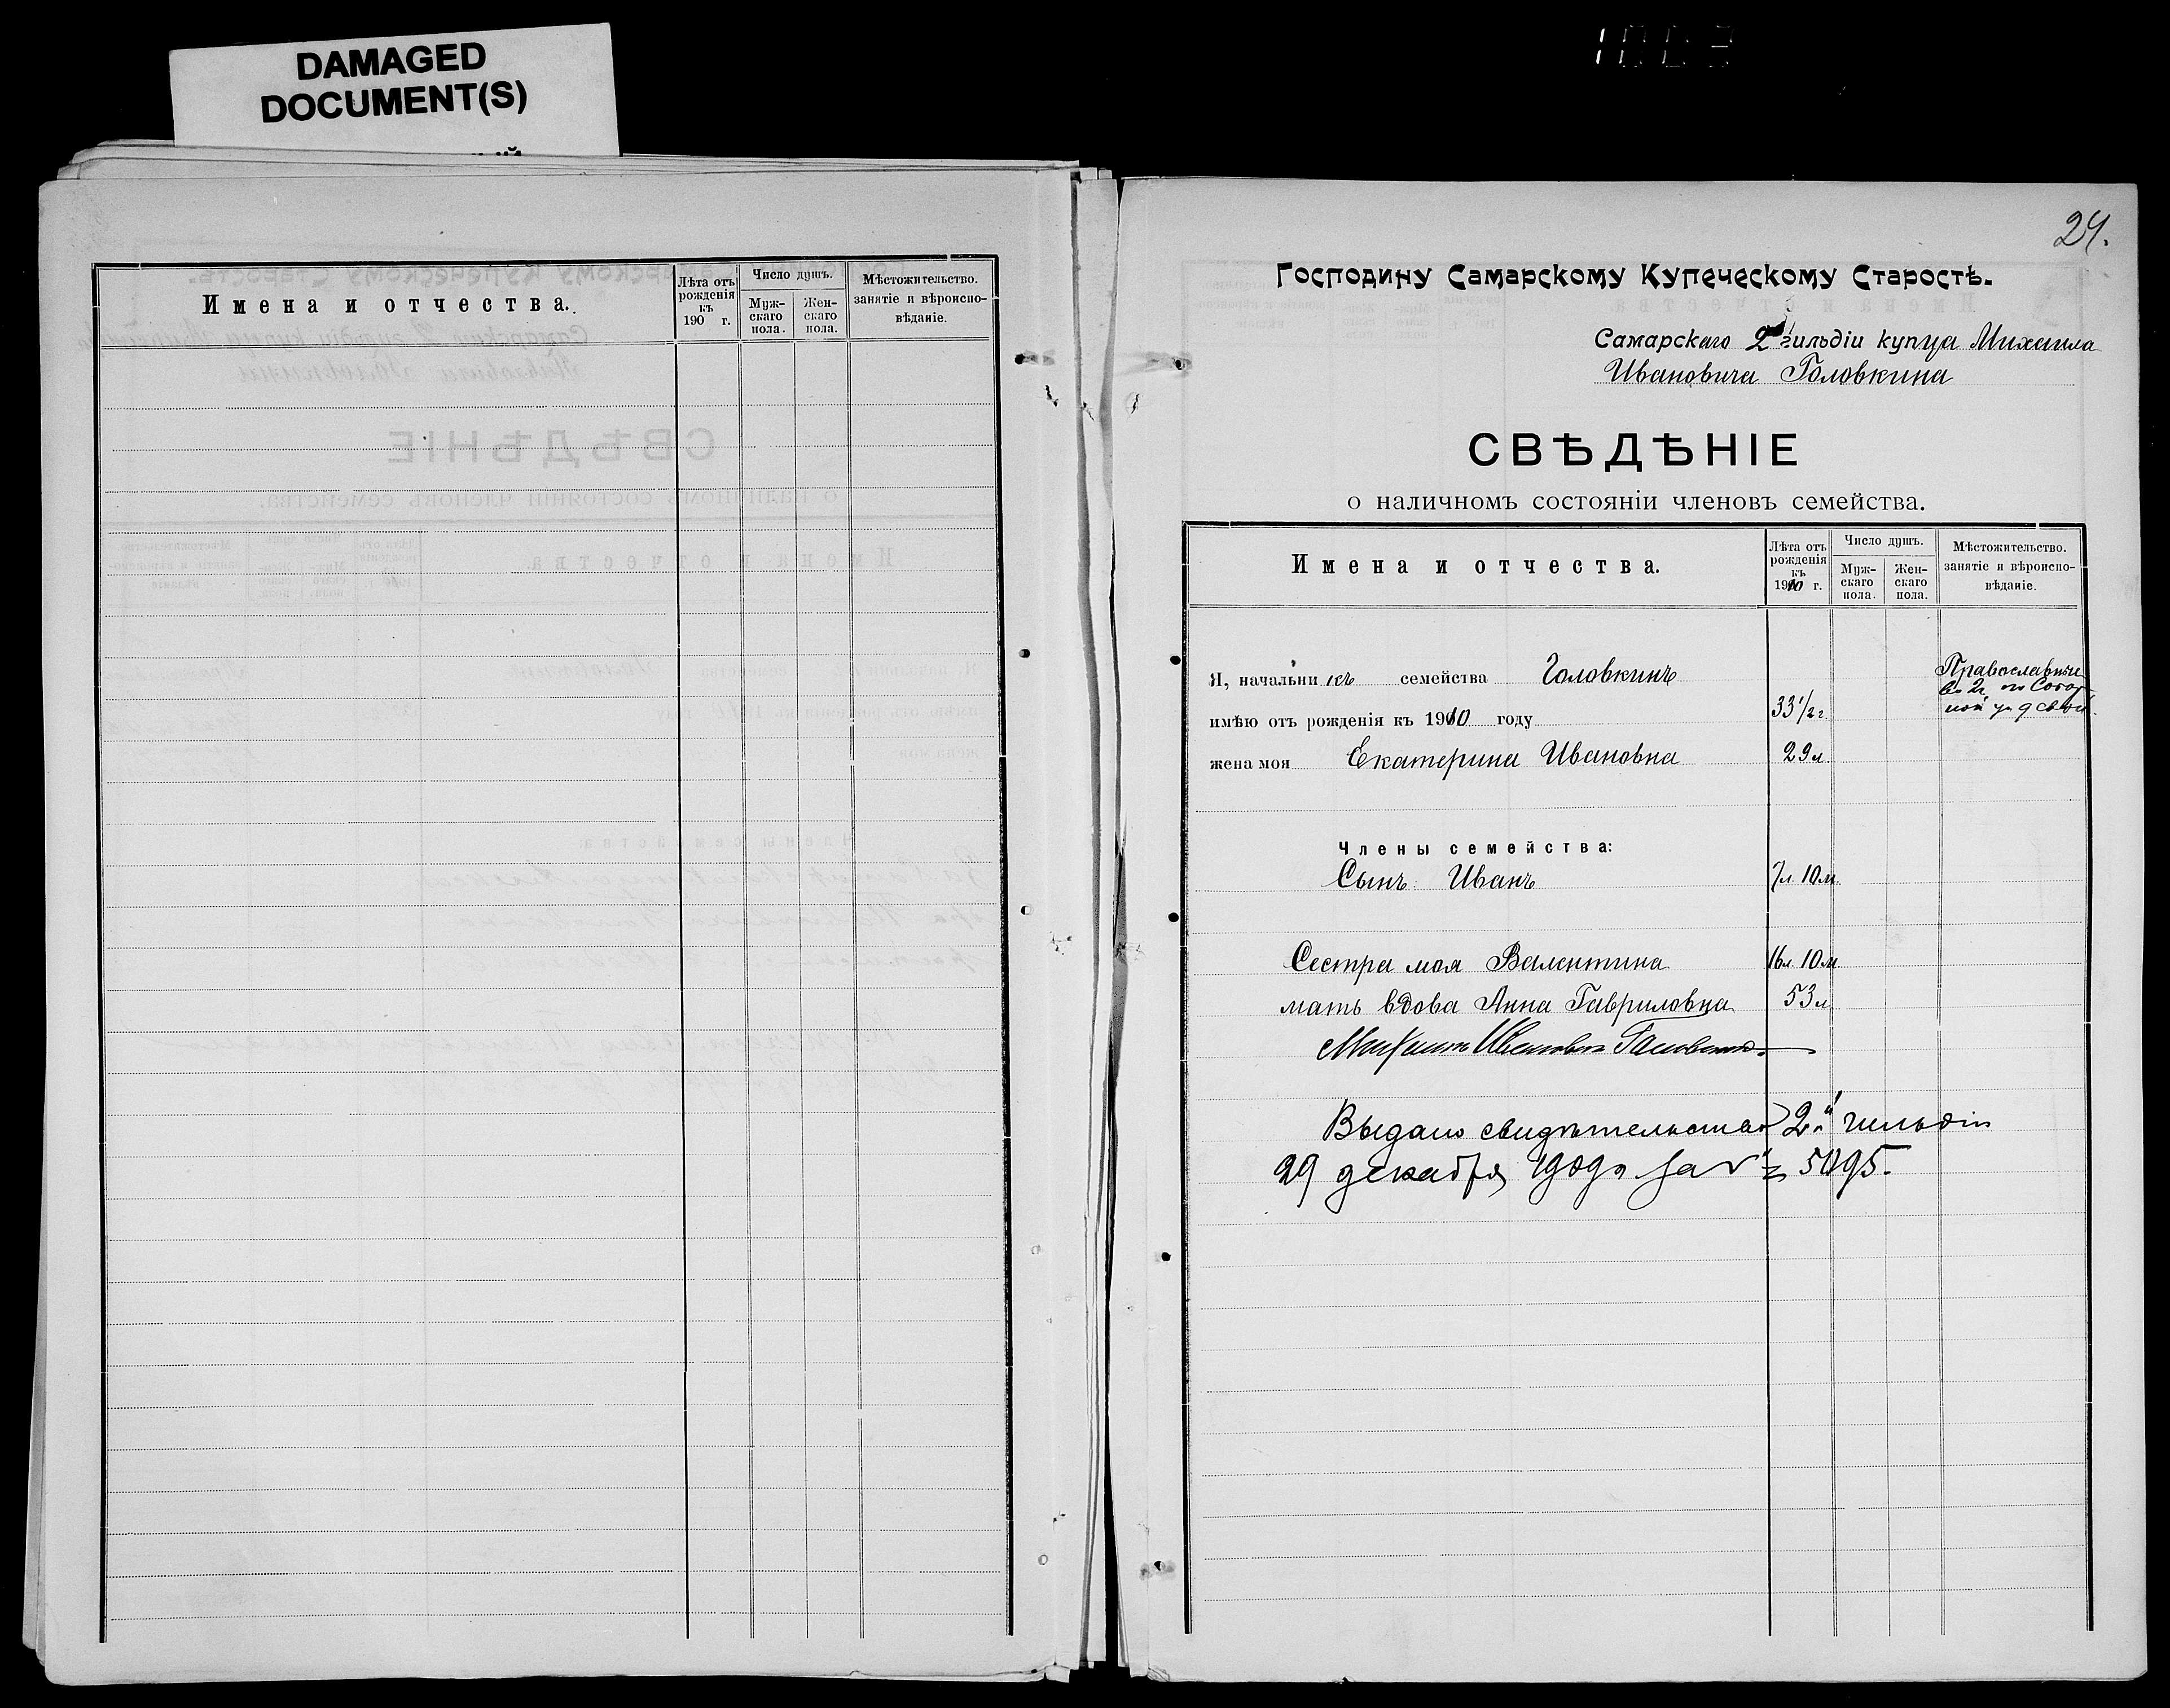 DAMAGED
DOCUMENT(S)
Имена и отчества.
Лѣта отъ рожденія къ 190 г.
Число душъ.
Муж-скаго пола.
Жен-скаго пола.
Мѣстожительство. занятіе и вѣроиспо-вѣданіе.
24.
Господину Самарскому Купеческому Старостѣ.
Самарскаго 2й гильдіи купца Михаила
Ивановича Головкина
СВѢДѢНІЕ
о наличномъ состояніи членовъ семейства.
Имена и отчества.
Лѣта отъ рожденія къ 1910 г.
Число душъ.
Муж-скаго пола.
Жен-скаго пола.
Мѣстожительство. занятіе и вѣроиспо-вѣданіе.
Я, начальникъ семейства Головкинъ
Православные
во 2й по Собор-
ной ул
имѣю отъ рожденія къ 1910 году 33 1/2 г.
жена моя Екатерина Ивановна 29 л
Члены семейства:
Сынъ Иванъ 7л 10м
Сестра моя Валентина 16л 10м
мать вдова Анна Гавриловна 53 л
Михаилъ Ивановъ Головкинъ.
Выдано свидѣтельство 2й гильдіи
29 декабря 1909г за № 5095.